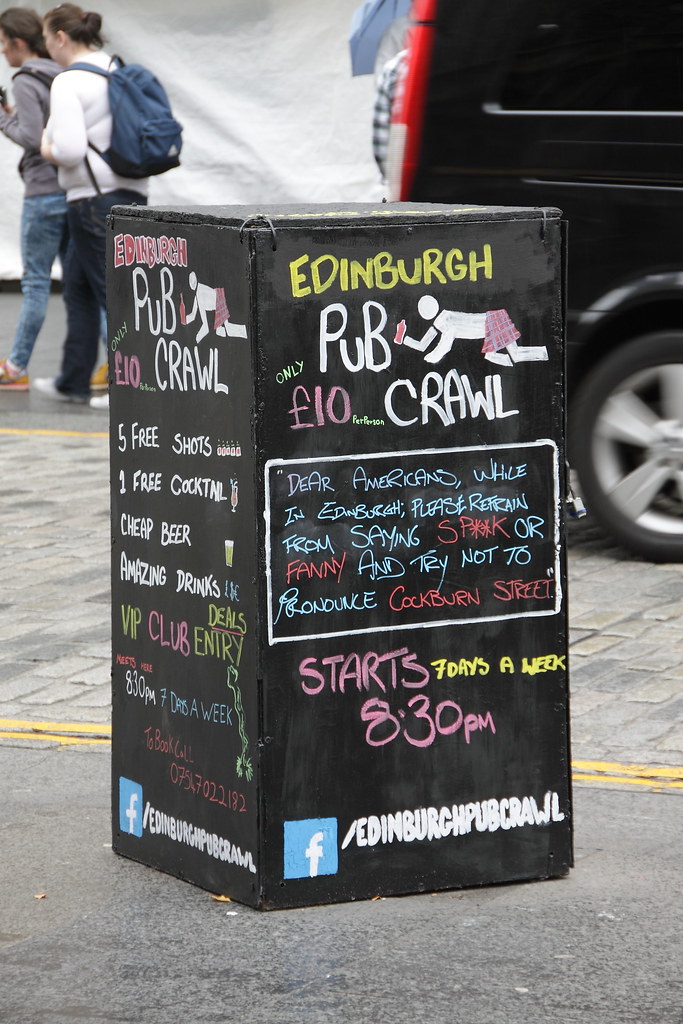 EDINBURGH
PUB
ONLY
£10 PerPerson
CRAWL
5 FREE SHOTS
1 FREE COCKTAIL
CHEAP BEER
AMAZING DRINKS
DEALS
VIP CLUB ENTRY
MEETS HERE
8:30PM 7 DAYS A WEEK
To Book Call
07547022182
f /EDINBURGHPUBCRAWL
EDINBURGH
PUB
ONLY
£10 PerPerson
CRAWL
"DEAR AMERICANS, WHILE
IN EDINBURGH; PLEASE REFRAIN
FROM SAYING SP**K OR
FANNY AND TRY NOT TO
PRONOUNCE COCKBURN STREET."
STARTS 7 DAYS A WEEK
8:30PM
f /EDINBURGHPUBCRAWL